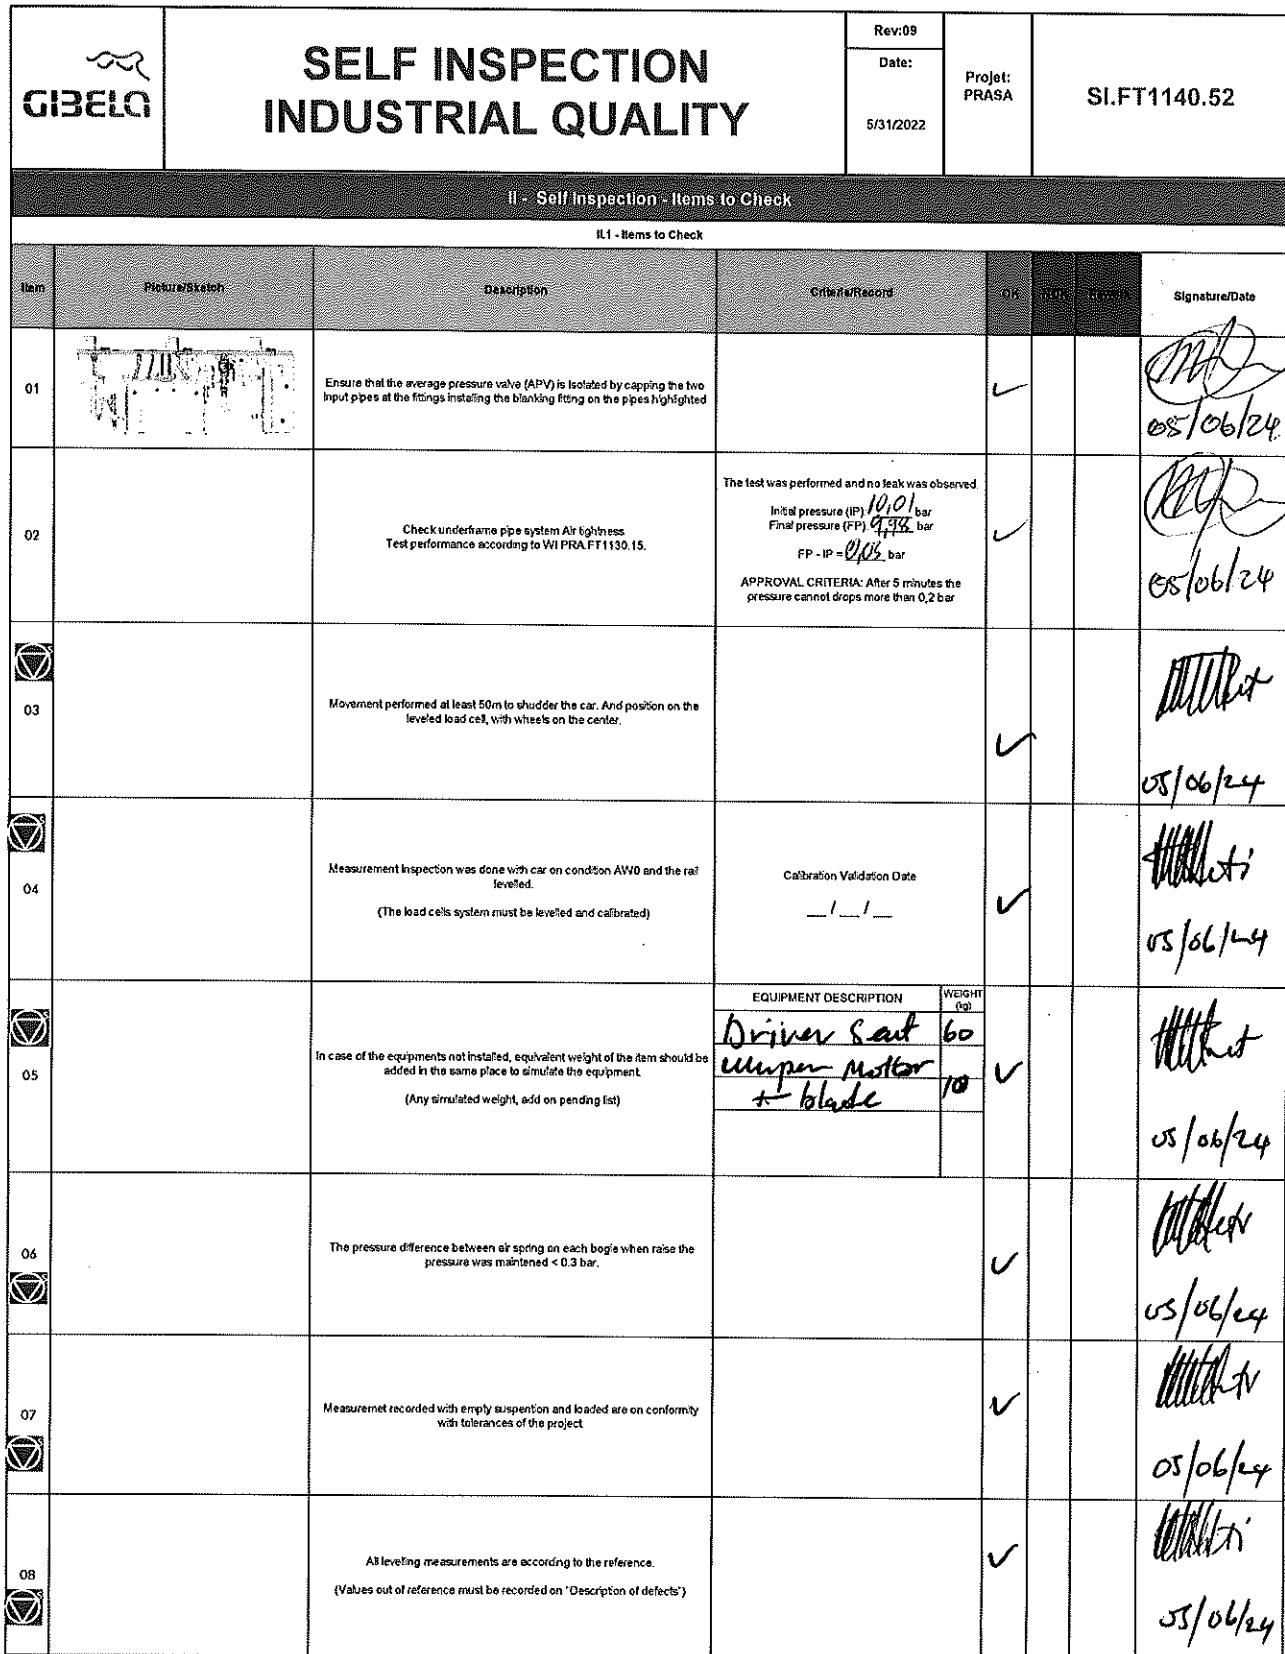 GIBELA
SELF INSPECTION
INDUSTRIAL QUALITY
Rev:09
Date:
5/31/2022
Projet:
PRASA
SI.FT1140.52
II - Self Inspection - Items to Check
II.1 - Items to Check
Item
Picture/Sketch
Description
Criteria/Record
OK
Signature/Date
01
Ensure that the average pressure valve (APV) is isolated by capping the two
input pipes at the fittings installing the blanking fitting on the pipes highlighted
✓
05/06/24
02
Check underframe pipe system Air tightness
Test performance according to WI PRA.FT1130.15.
The test was performed and no leak was observed.
Initial pressure (IP) 10,01 bar
Final pressure (FP) 9,98 bar
FP - IP = bar
APPROVAL CRITERIA: After 5 minutes the
pressure cannot drops more than 0,2 bar
✓
05/06/24
03
Movement performed at least 50m to shudder the car. And position on the
leveled load cell, with wheels on the center.
✓
05/06/24
04
Measurement inspection was done with car on condition AW0 and the rail
levelled.
(The load cells system must be levelled and calibrated)
Calibration Validation Date
__/__/__
✓
05/06/24
05
In case of the equipments not installed, equivalent weight of the item should be
added in the same place to simulate the equipment.
(Any simulated weight, add on pending list)
EQUIPMENT DESCRIPTION WEIGHT (kg)
Driver Seat 60
Motor
+ blade 10
✓
05/06/24
06
The pressure difference between air spring on each bogie when raise the
pressure was maintened < 0.3 bar.
✓
05/06/24
07
Measuremet recorded with empty suspention and loaded are on conformity
with tolerances of the project
✓
05/06/24
08
All leveling measurements are according to the reference.
(Values out of reference must be recorded on "Description of defects")
✓
05/06/24